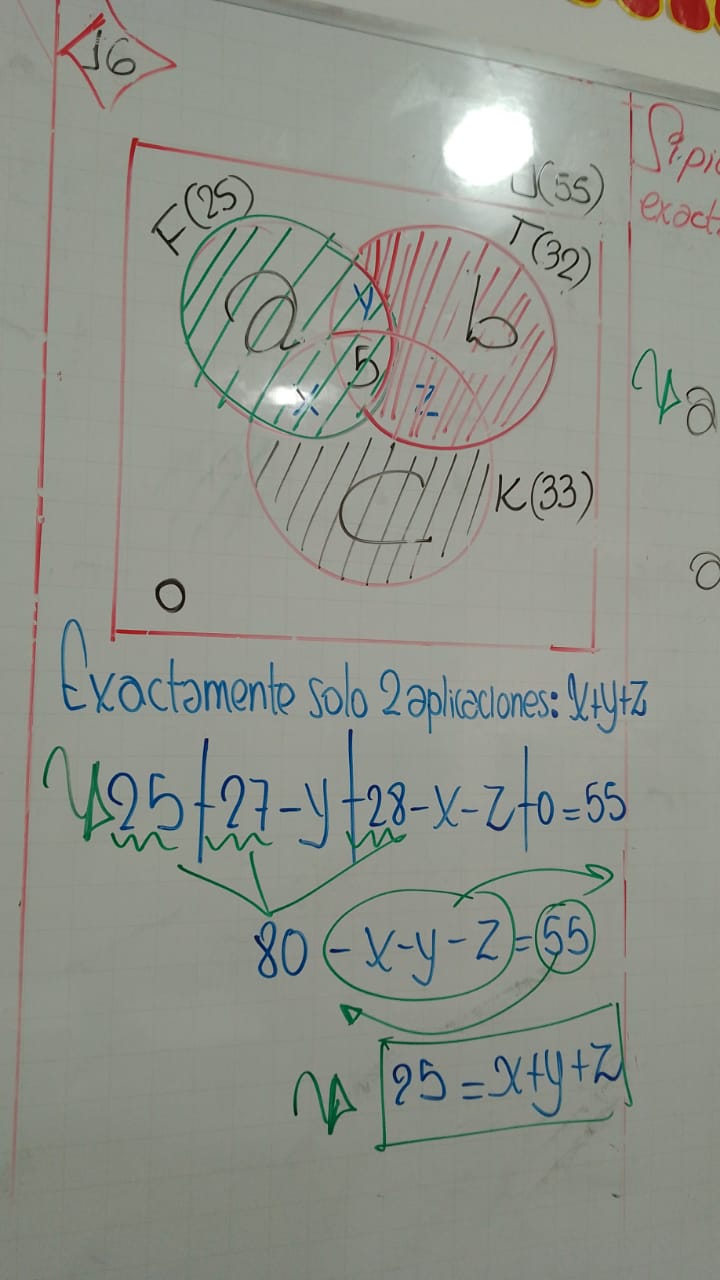 16
U(55)
F(25)
T(32)
a
y
b
5
x
z
K(33)
C
0
Exactamente solo 2 aplicaciones: x+y+z
25+27-y+28-x-z+0=55
80-x-y-z=55
25=x+y+z
exact
a